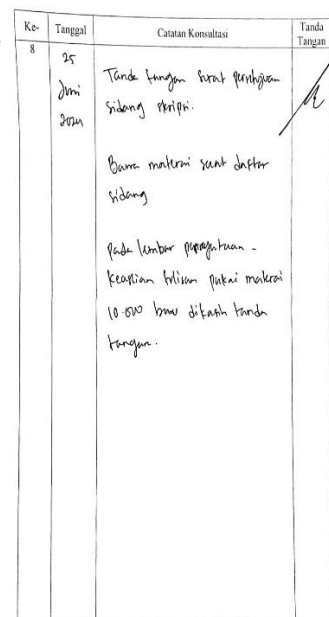 Ke- Tanggal Catatan Konsultasi Tanda Tangan
8 25 Juni 2024
Tanda tangan surat persetujuan
sidang skripsi.
Bawa materai saat daftar
sidang
Pada lembar pernyataan -
Keaslian tulisan pakai materai
10.000 baru dikasih tanda
tangan.